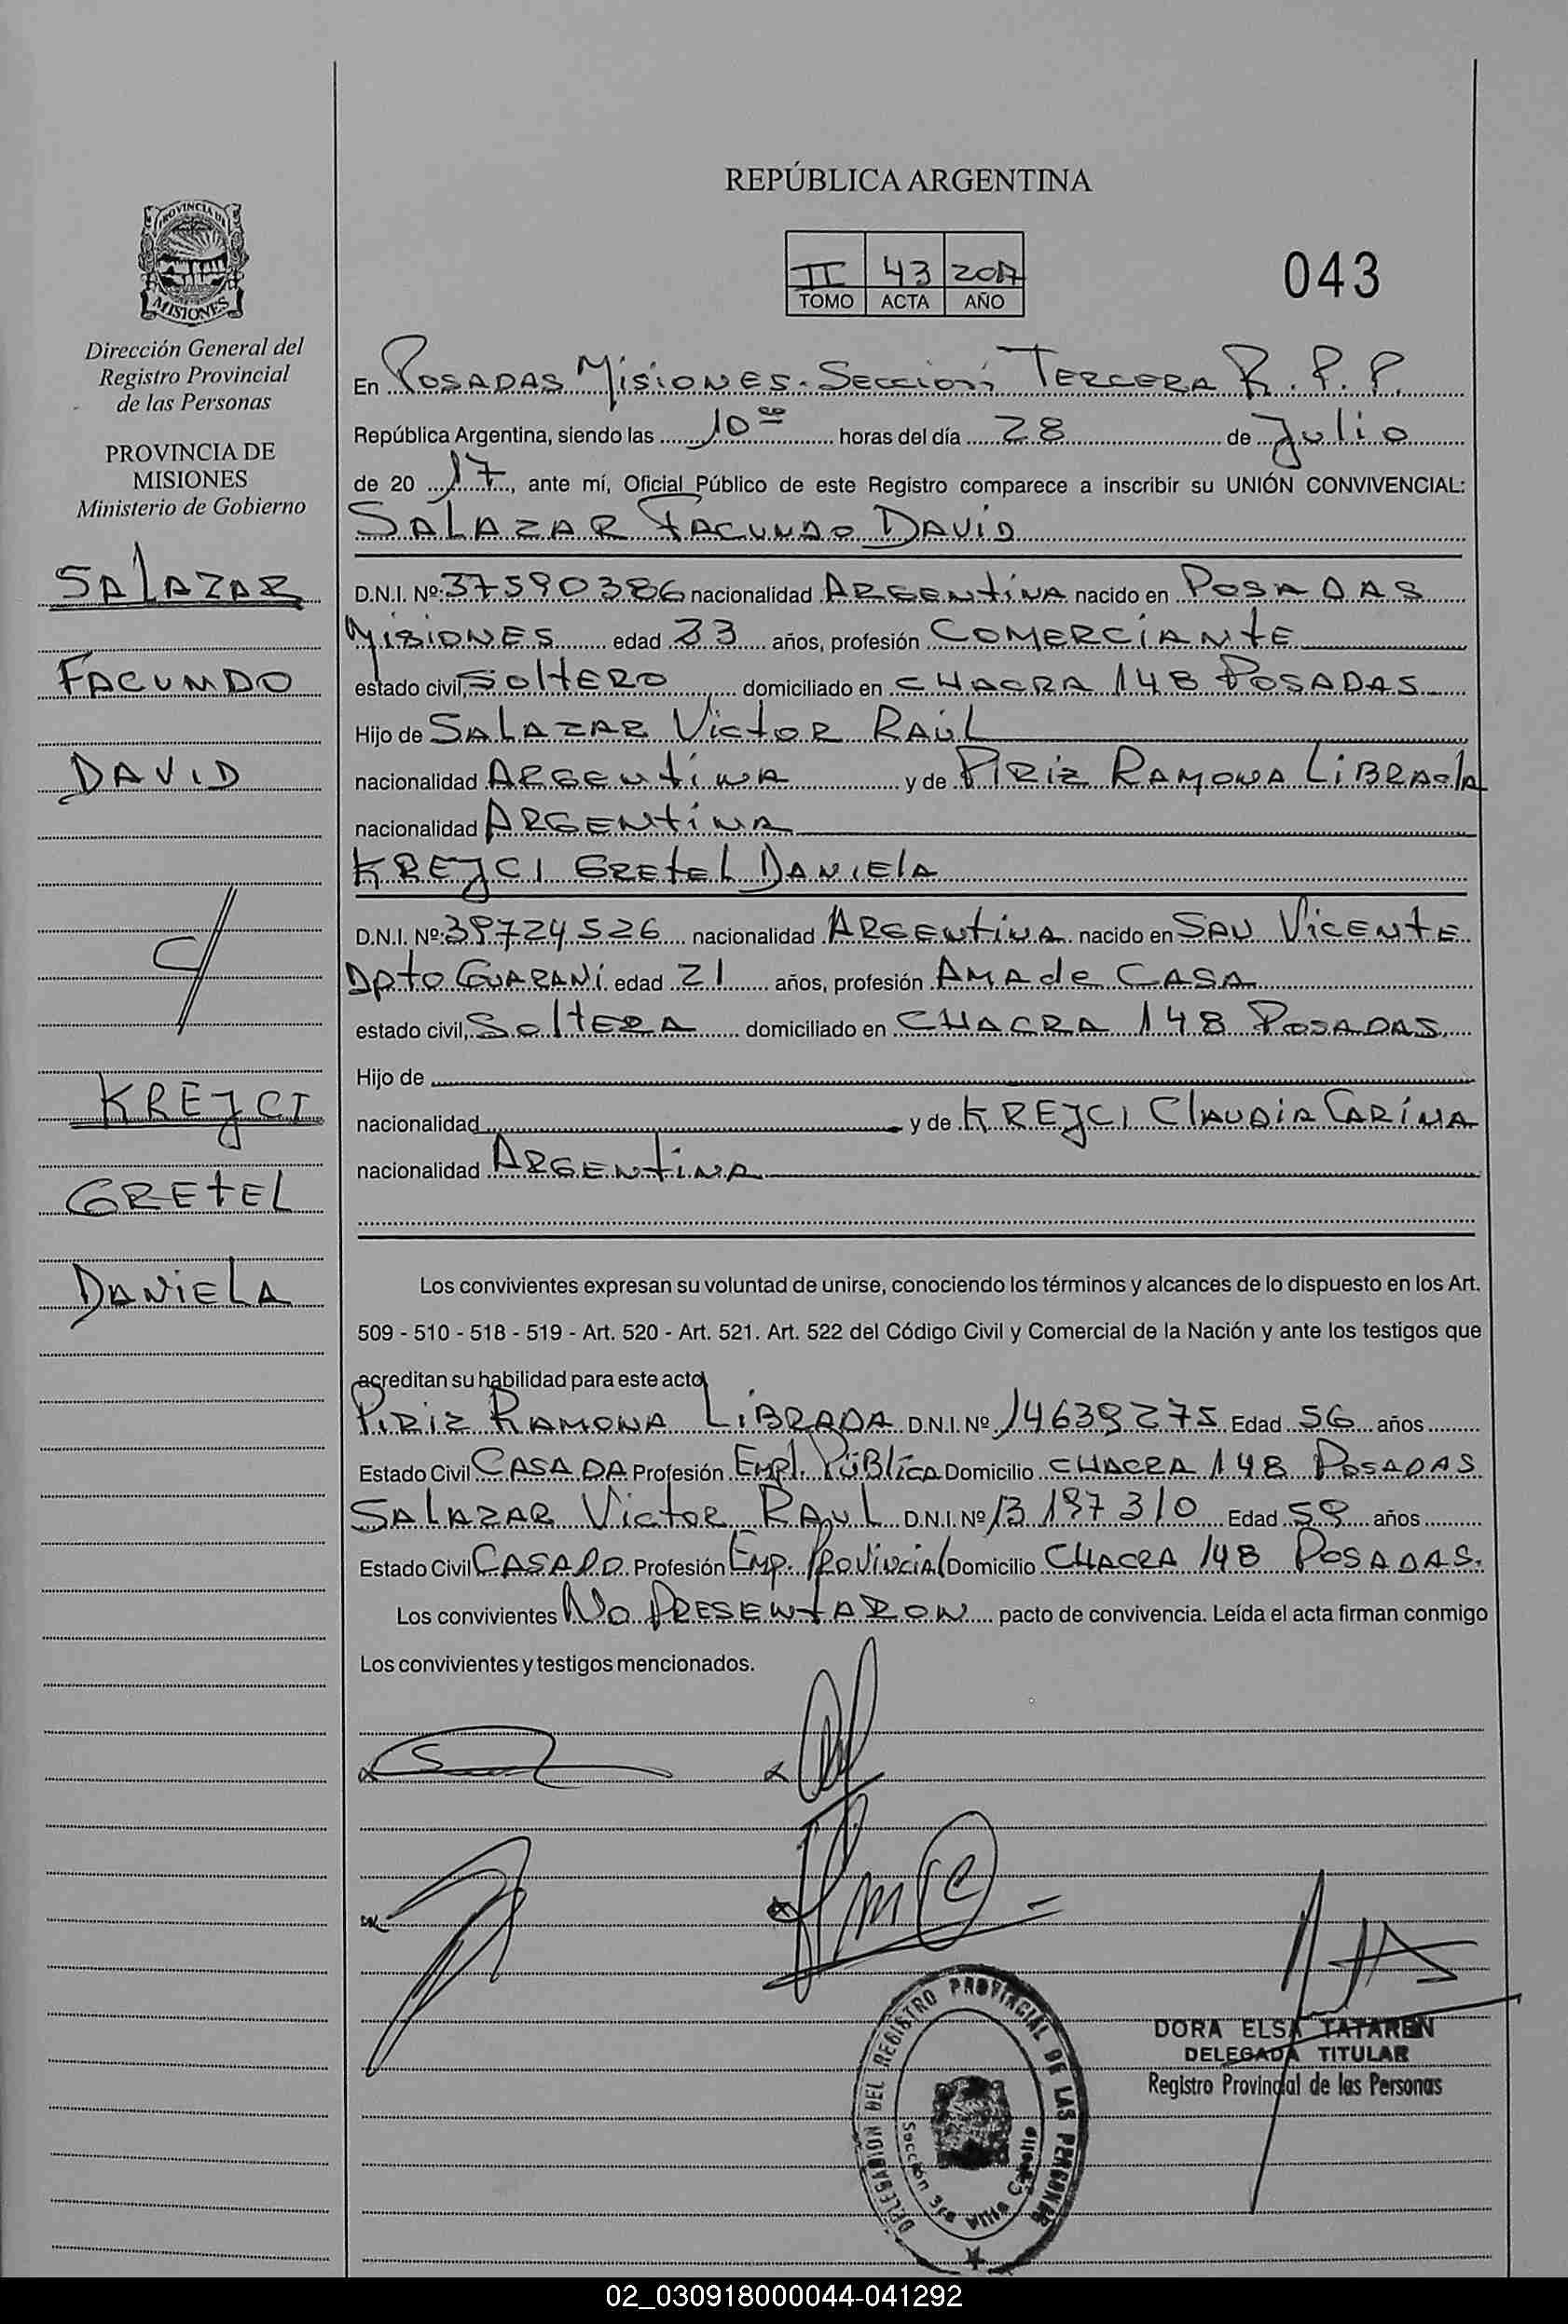 REPÚBLICA ARGENTINA
PROVINCIA DE
MISIONES
II 43 2017
TOMO ACTA AÑO
043
Dirección General del
Registro Provincial
de las Personas
PROVINCIA DE
MISIONES
Ministerio de Gobierno
SALAZAR
FACUNDO
DAVID
c/
KREJCI
GRETEL
DANIELA
En POSADAS MisiONES. SECCioN TERCERA R.P.P.
República Argentina, siendo las 10 00 horas del día 28 de Julio
de 20 17, ante mí, Oficial Público de este Registro comparece a inscribir su UNIÓN CONVIVENCIAL:
SALAZAR FACUNDO DAViD
D.N.I. Nº: 37590386 nacionalidad ARGENtiNA nacido en POSADAS
MISIONES edad 23 años, profesión COMERCiANtE
estado civil, SOltERO domiciliado en CHACRA 148 POSADAS
Hijo de SALAZAR VictoR RAÚL
nacionalidad ARGENtiNA y de PIRiz RAMONA LiBRADA
nacionalidad ARGENtiNA
KREJCI GREtEL DANiElA
D.N.I. Nº: 39724526 nacionalidad ARGENtiNA nacido en SAN ViCENtE
Dpto GUARANí edad 21 años, profesión AMA de CASA
estado civil, SoltERA domiciliado en CHACRA 148 POSADAS
Hijo de
nacionalidad y de KREJCI ClAUDiA CARiNA
nacionalidad ARGENtiNA
Los convivientes expresan su voluntad de unirse, conociendo los términos y alcances de lo dispuesto en los Art.
509 - 510 - 518 - 519 - Art. 520 - Art. 521. Art. 522 del Código Civil y Comercial de la Nación y ante los testigos que
acreditan su habilidad para este acto
PiRiz RAMONA LiBRADA D.N.I. Nº 14639275 Edad 56 años
Estado Civil CASADA Profesión Empl. PÚBLiCA Domicilio CHACRA 148 POSADAS
SALAZAR VictoR RAUL D.N.I. Nº 13197310 Edad 59 años
Estado Civil CASADO Profesión Emp. PROViNCiAl Domicilio CHACRA 148 POSADAS.
Los convivientes No PRESENtARON pacto de convivencia. Leída el acta firman conmigo
Los convivientes y testigos mencionados.
DELEGACION DEL REGISTRO PROVINCIAL DE LAS PERSONAS
Sección 3ra Villa Cabello
DORA ELSA TATAREN
DELEGADA TITULAR
Registro Provincial de las Personas
02_030918000044-041292